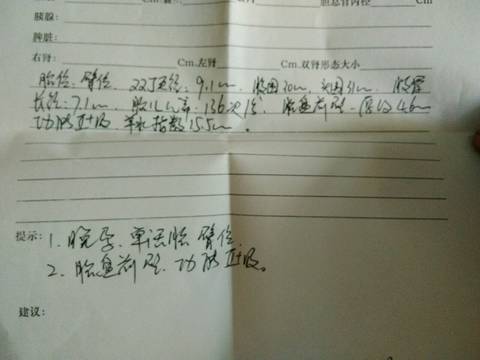 胰腺: Cm
脾脏:
右肾 Cm 左肾 Cm 双肾形态大小
胎位: 臀位. 双顶径: 9.1cm. 腹围30cm. 头围31cm. 股骨
长径: 7.1cm. 胎儿心率: 136次/分. 胎盘前壁. 厚约4.6cm
功能II+级 羊水指数15.5cm.
提示: 1. 晚孕. 单活胎 臀位.
2. 胎盘前壁. 功能II+级.
建议: